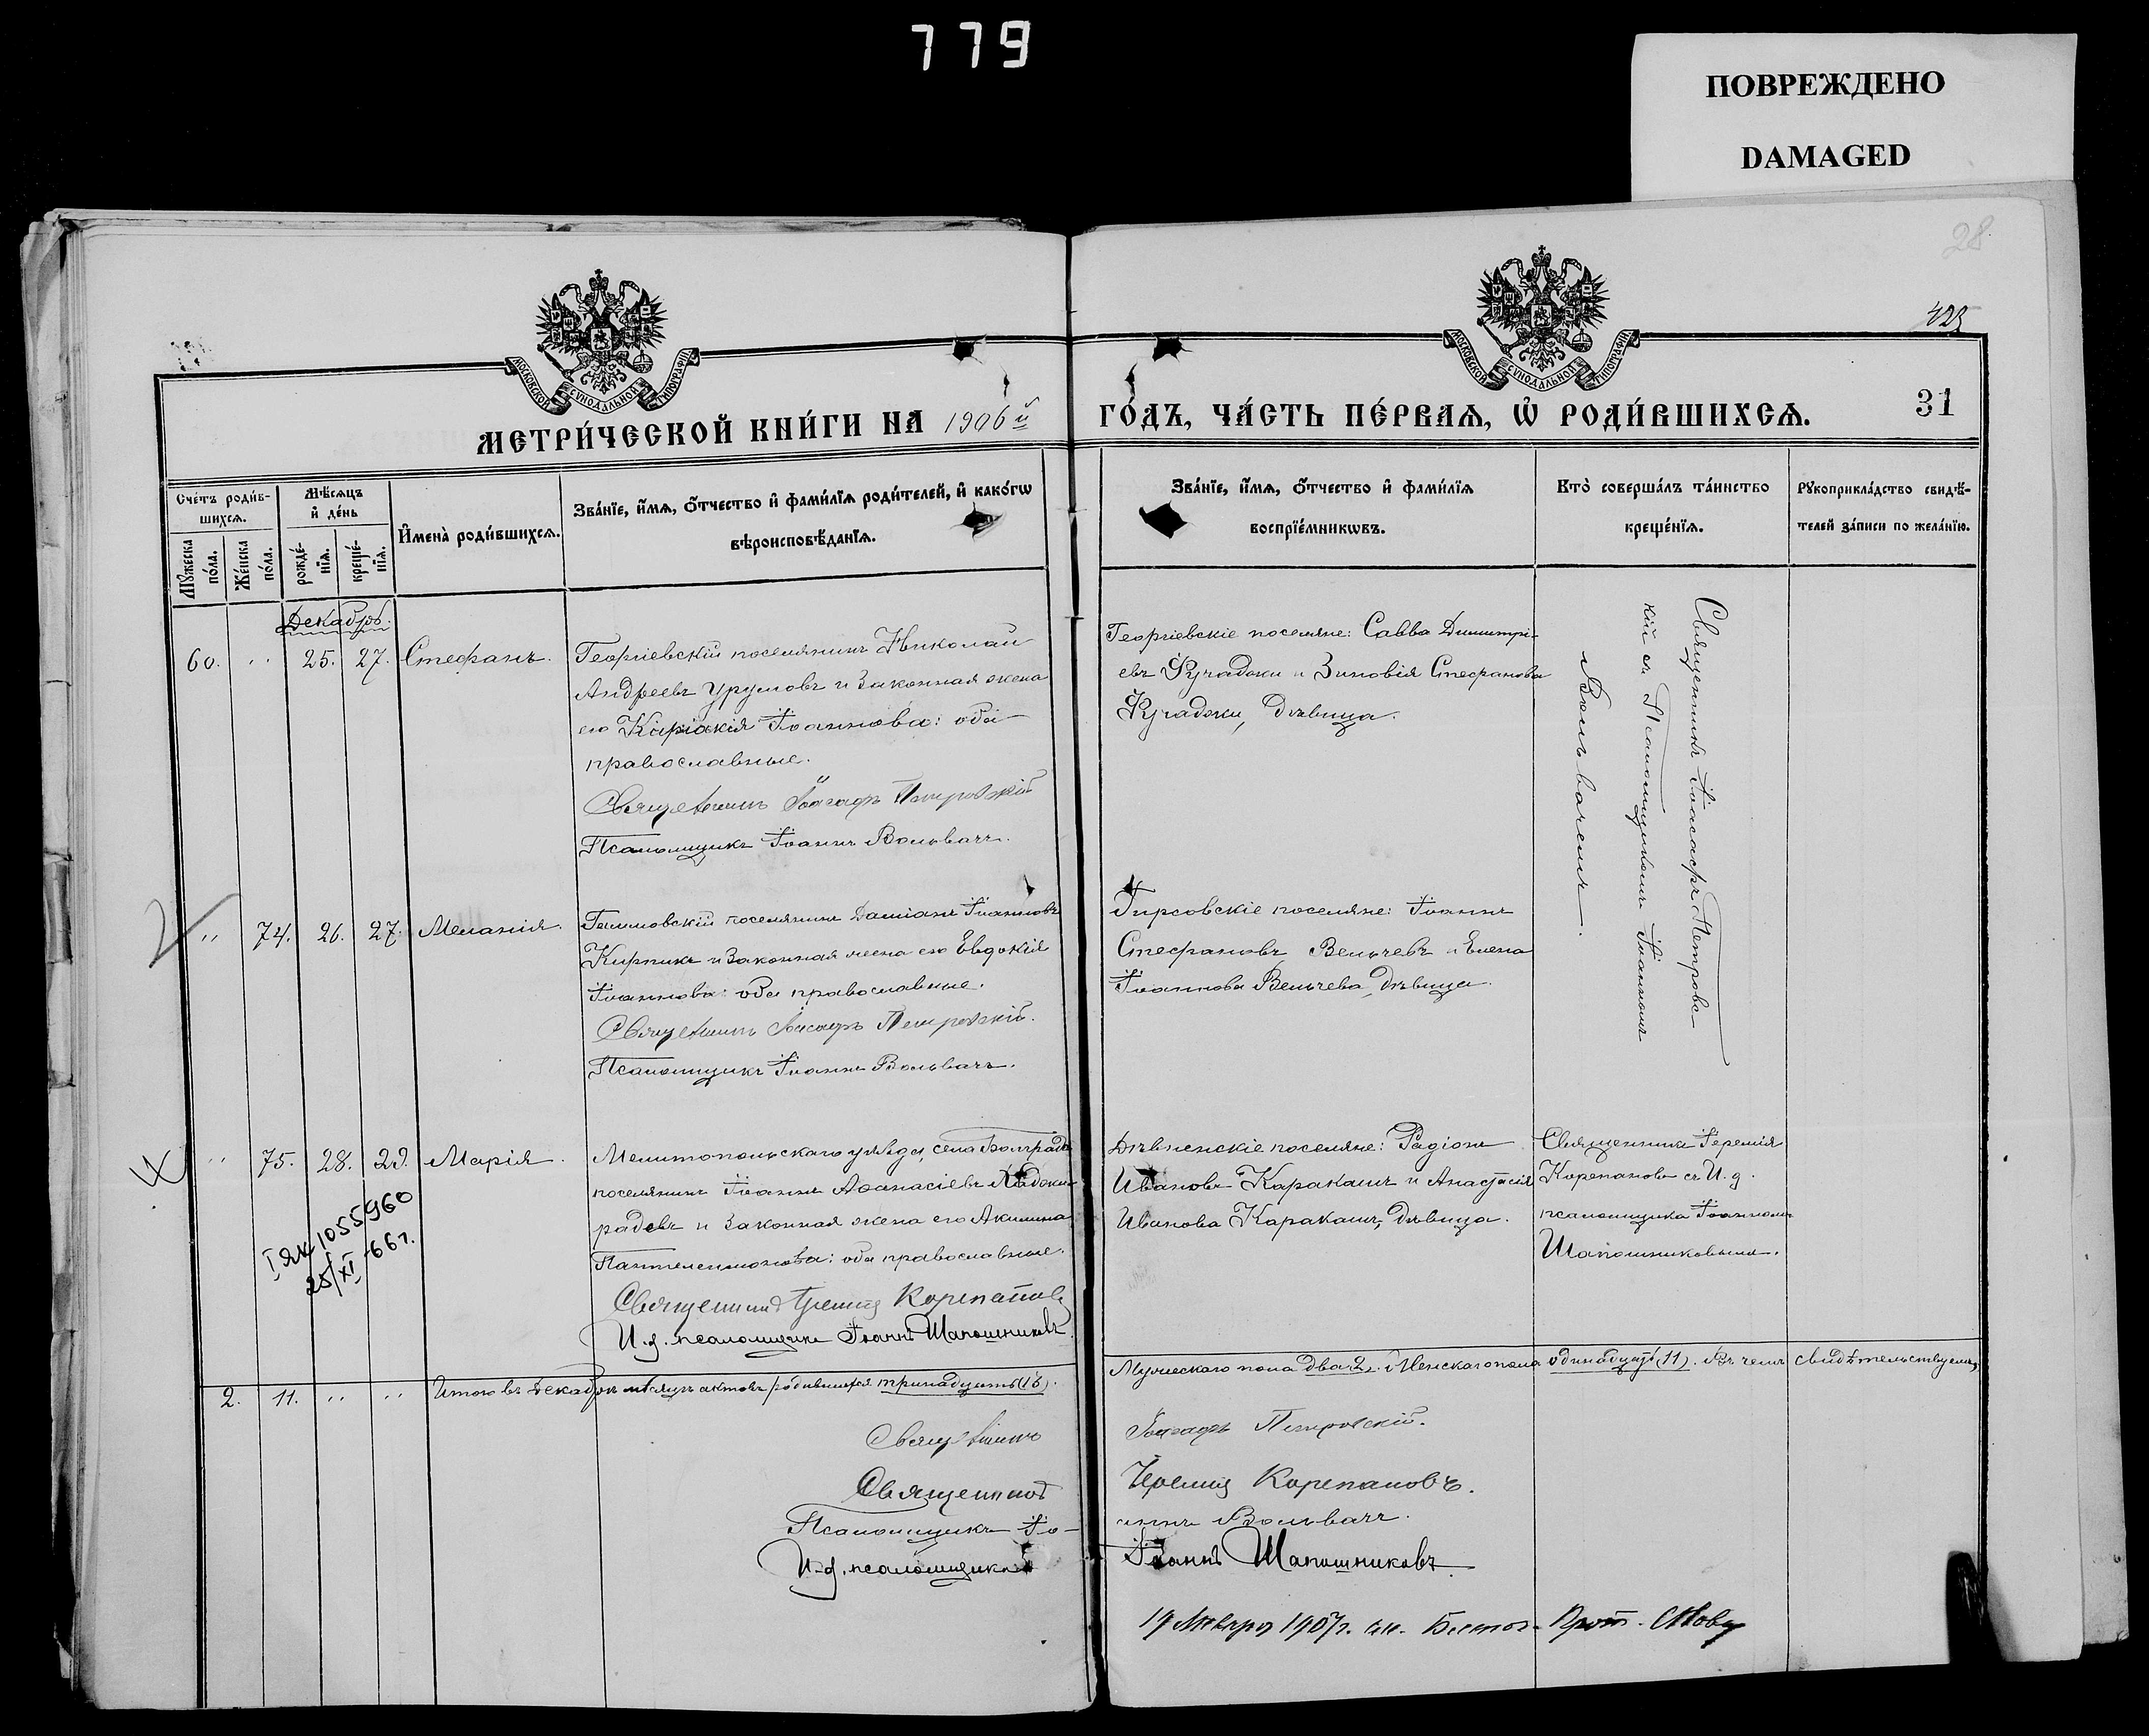 779
ПОВРЕЖДЕНО
DAMAGED
28.
423
31
МОСКОВСКОЙ СѴНОДАЛЬНОЙ ТИПОГРАФІИ
МОСКОВСКОЙ СѴНОДАЛЬНОЙ ТИПОГРАФІИ
МЕТРИ́ЧЕСКОЙ КНИ́ГИ НА 1906й
ГО́ДЪ, ЧА́СТЬ ПЕ́РВАѦ, Ѡ҆ РОДИ́ВШИХСѦ.
Сче́тъ роди́в-
шихсѧ.
Мꙋжеска по́ла.
Же́нска по́ла.
Мѣ́сѧцъ
и҆ де́нь
рожде́-
нїѧ.
креще́-
нїѧ.
И҆мена̀ роди́вшихсѧ.
Зва́нїе, и҆́мѧ, ѻ҆́тчество и҆ фами́лїѧ роди́телей, и҆ како́гѡ
вѣроисповѣ́данїѧ.
Зва́нїе, и҆́мѧ, ѻ҆́тчество и҆ фами́лїѧ
воспрїе́мникѡвъ.
Кто̀ соверша́лъ та́инство
креще́нїѧ.
Рꙋкоприкла́дство свидѣ́-
телей за́писи по жела́нїю.
Декабрь.
60. " 25. 27. Стефанъ.
Георгіевскій поселянинъ Николай
Андреевъ Урумовъ и законная жена
его Киріакія Іоаннова: оба
православные.
Священникъ Іоасафъ Петровскій
Псаломщикъ Іоаннъ Вольвачъ.
Георгіевскіе поселяне: Савва Димитрі-
евъ и Зиновія Стефанова
дѣвица.
Священникъ Іоасафъ Петровс-
кій съ Псаломщикомъ Іоанномъ
Вольвачемъ.
" 74. 26. 27. Меланія.
поселянинъ Даміанъ Іоанновъ
Кирпикъ и законная жена его Евдокія
Іоаннова: оба православные.
Священникъ Іоасафъ Петровскій.
Псаломщикъ Іоаннъ Вольвачъ.
Гирсовскіе поселяне: Іоаннъ
Стефановъ Вельчевъ и Елена
Іоаннова Вельчева, дѣвица.
" 75. 28. 29. Марія.
Мелитопольскаго уѣзда, села Болградъ
поселянинъ Іоаннъ Аѳанасіевъ
и законная жена его Акилина
Пантелеимонова: оба православные.
Священникъ Іеремія Корепановъ
И.д. псаломщика Іоаннъ Шапошниковъ.
Дѣвненскіе поселяне: Радіонъ
Ивановъ Каракашъ и Анастасія
Иванова Каракашъ, дѣвица.
Священникъ Іеремія
Корепановъ съ И.д.
псаломщика Іоанномъ
Шапошниковымъ.
I ЯК 1055960
25/XI-66г.
2. 11. " " Итого въ Декабрѣ мѣсяцѣ актовъ родившихся тринадцать (13).
Мужескаго пола два 2. Женскаго пола одинадцать (11). Въ чемъ свидѣтельствуемъ,
Священникъ Іоасафъ Петровскій.
Священникъ Іеремія Корепановъ.
Псаломщикъ Іо- аннъ Вольвачъ.
И.д. псаломщика Іоаннъ Шапошниковъ.
Января 1907г.